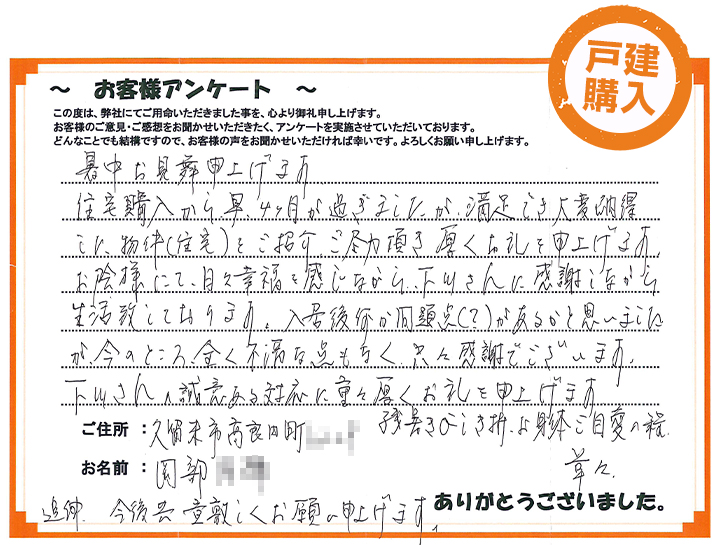 戸建
購入
~ お客様アンケート ~
この度は、弊社にてご用命いただきました事を、心より御礼申し上げます。
お客様のご意見・ご感想をお聞かせいただきたく、アンケートを実施させていただいております。
どんなことでも結構ですので、お客様の声をお聞かせいただければ幸いです。よろしくお願い申し上げます。
暑中お見舞申上げます
住宅購入から早、4ヶ月が過ぎましたが、満足でき大変納得
した物件(住宅)をご紹介ご尽力頂き厚くお礼を申上げます。
お陰様にて、日々幸福を感じながら、下川さんに感謝しながら
生活致しております。入居後何か問題点(?)があるかと思いました
が、今のところ、全く不満な点もなく、只々感謝でございます。
下川さんの誠意ある対応に重々厚くお礼を申上げます
残暑きびしき折、お身体ご自愛の程
草々
ご住所 : 久留米市高良内町
お名前 : 岡部
追伸. 今後共宜敷しくお願い申上げます。
ありがとうございました。